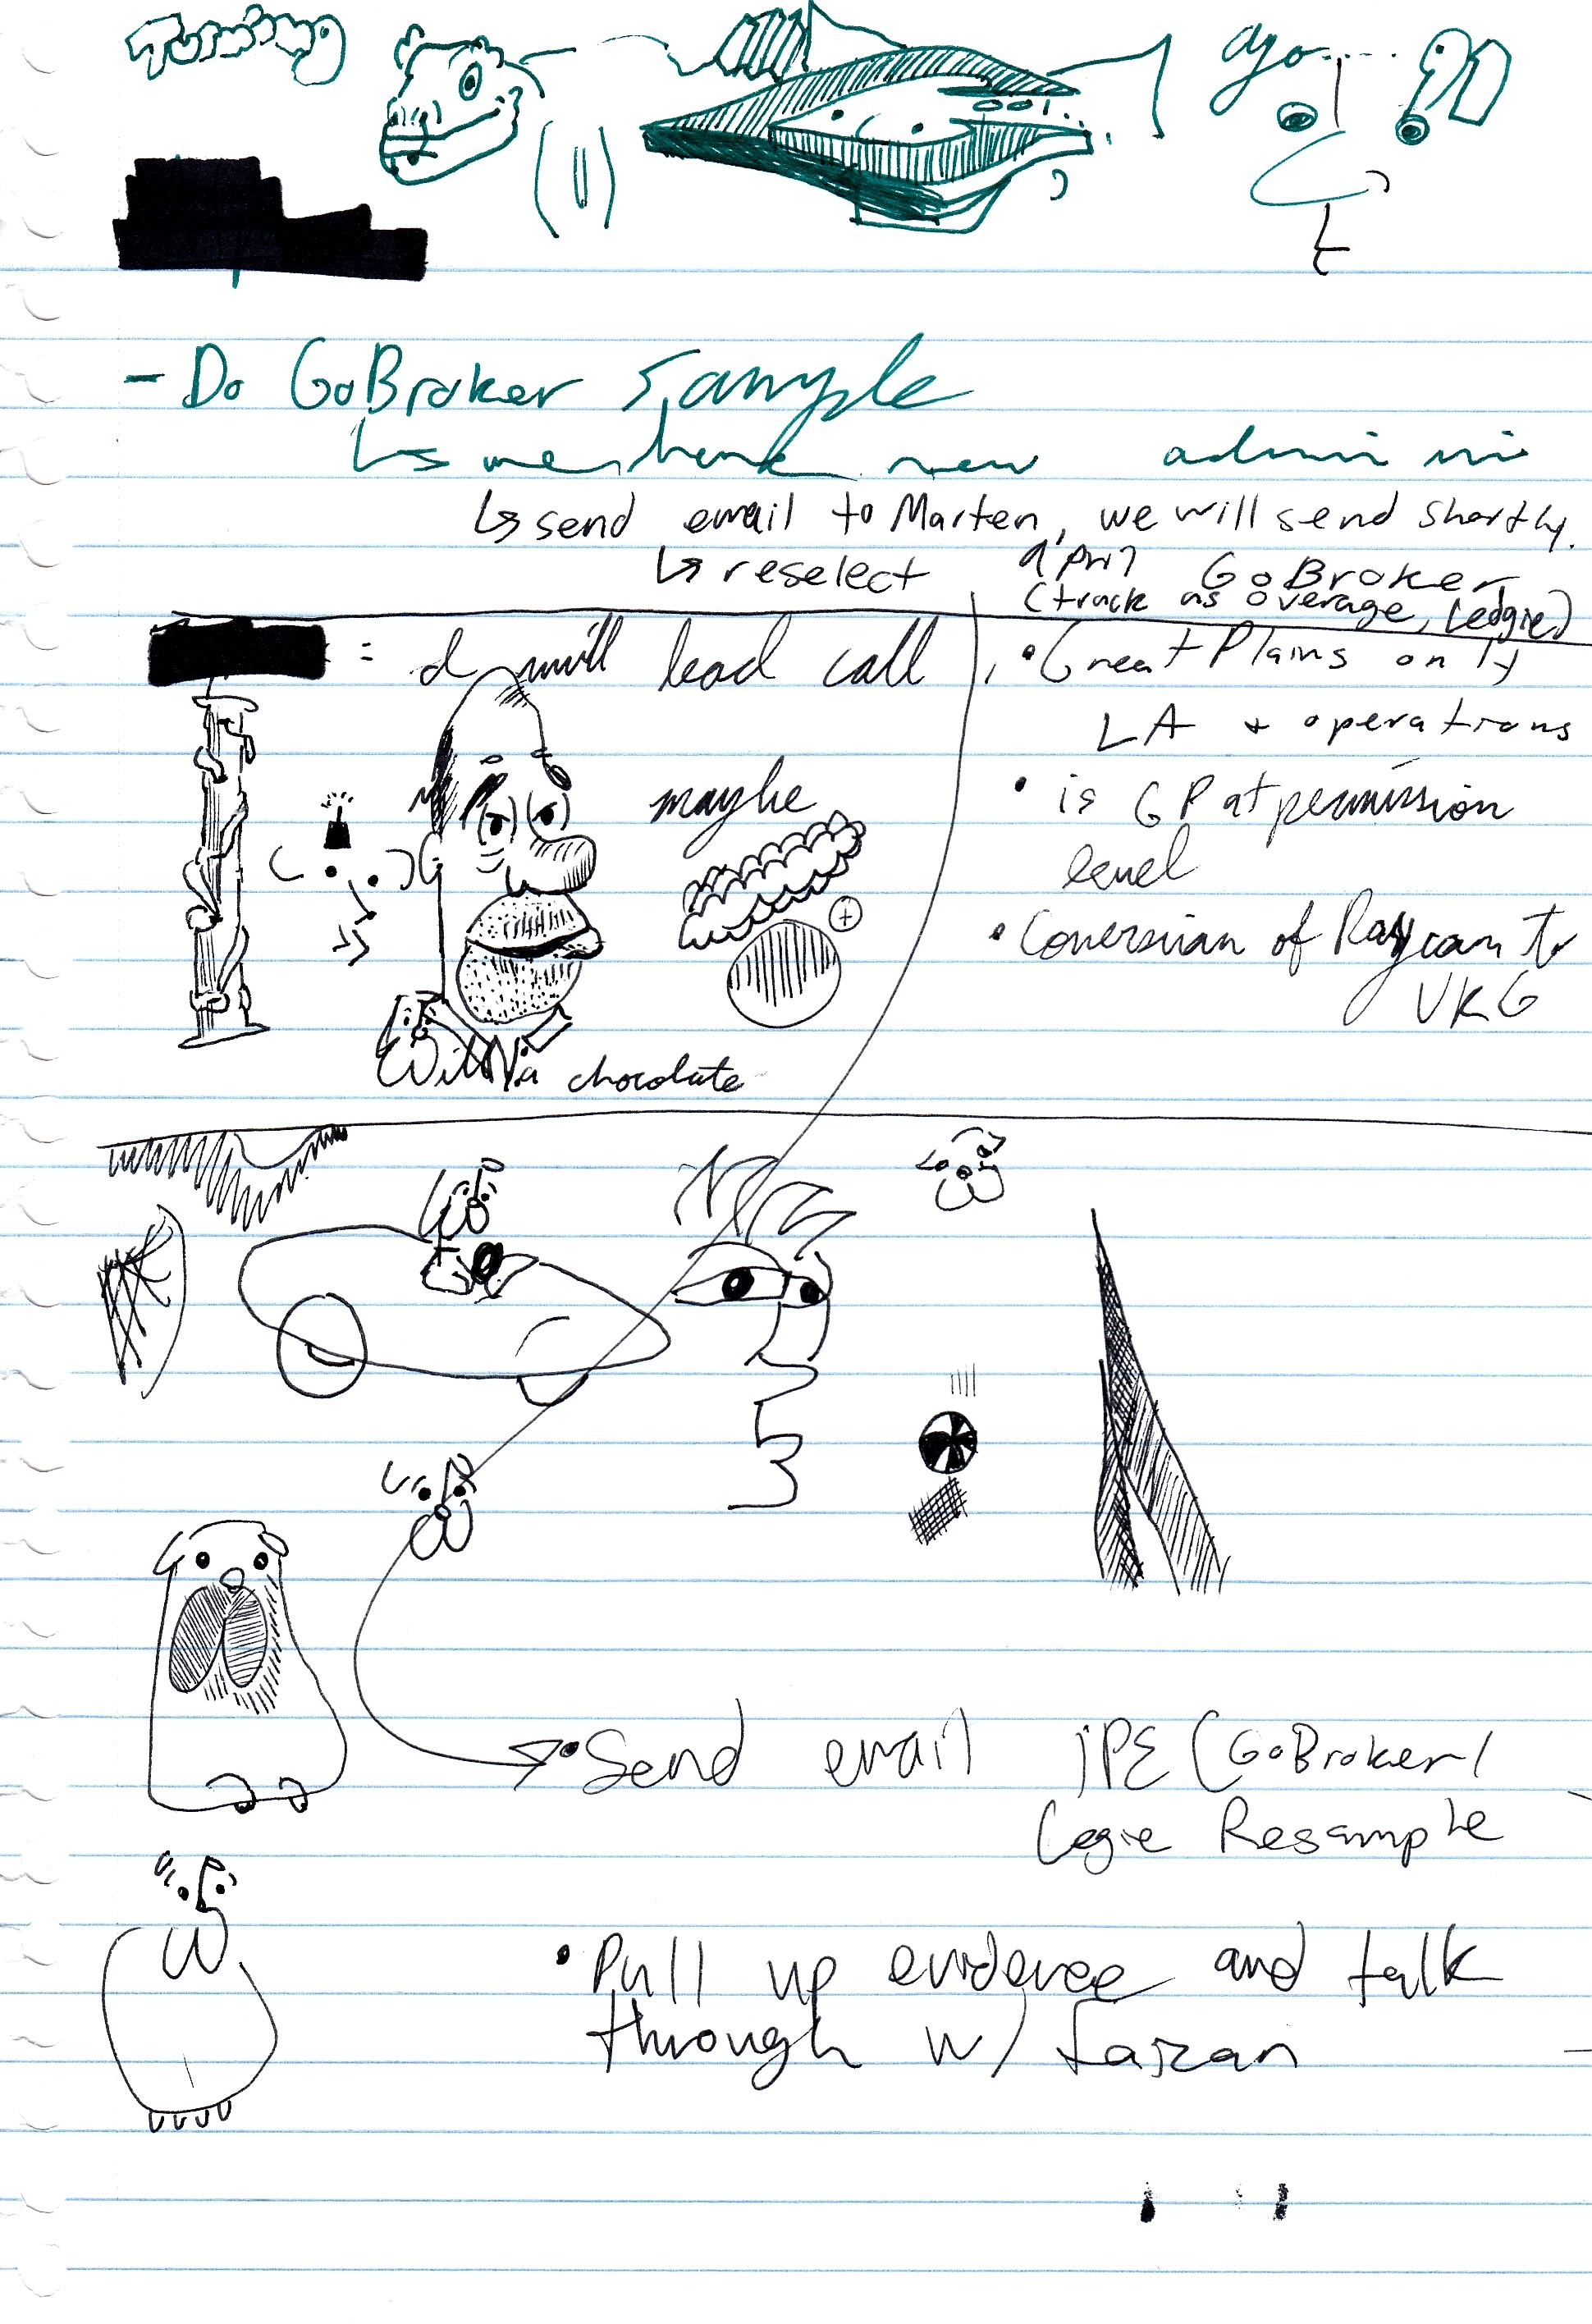 Turning
ago....
- Do GoBroker Sample
↳ new
↳ send email to Marten, we will send shortly.
↳ reselect April GoBroker
(track as overage, Ledgie)
= I will lead call
• Great Plains only
LA + operations
maybe
• is GP at permission
level
• Conversion of Raycom to
VKG
chocolate
• Send email JPE (GoBroker/
Resample
• Pull up evidence and talk
through w/